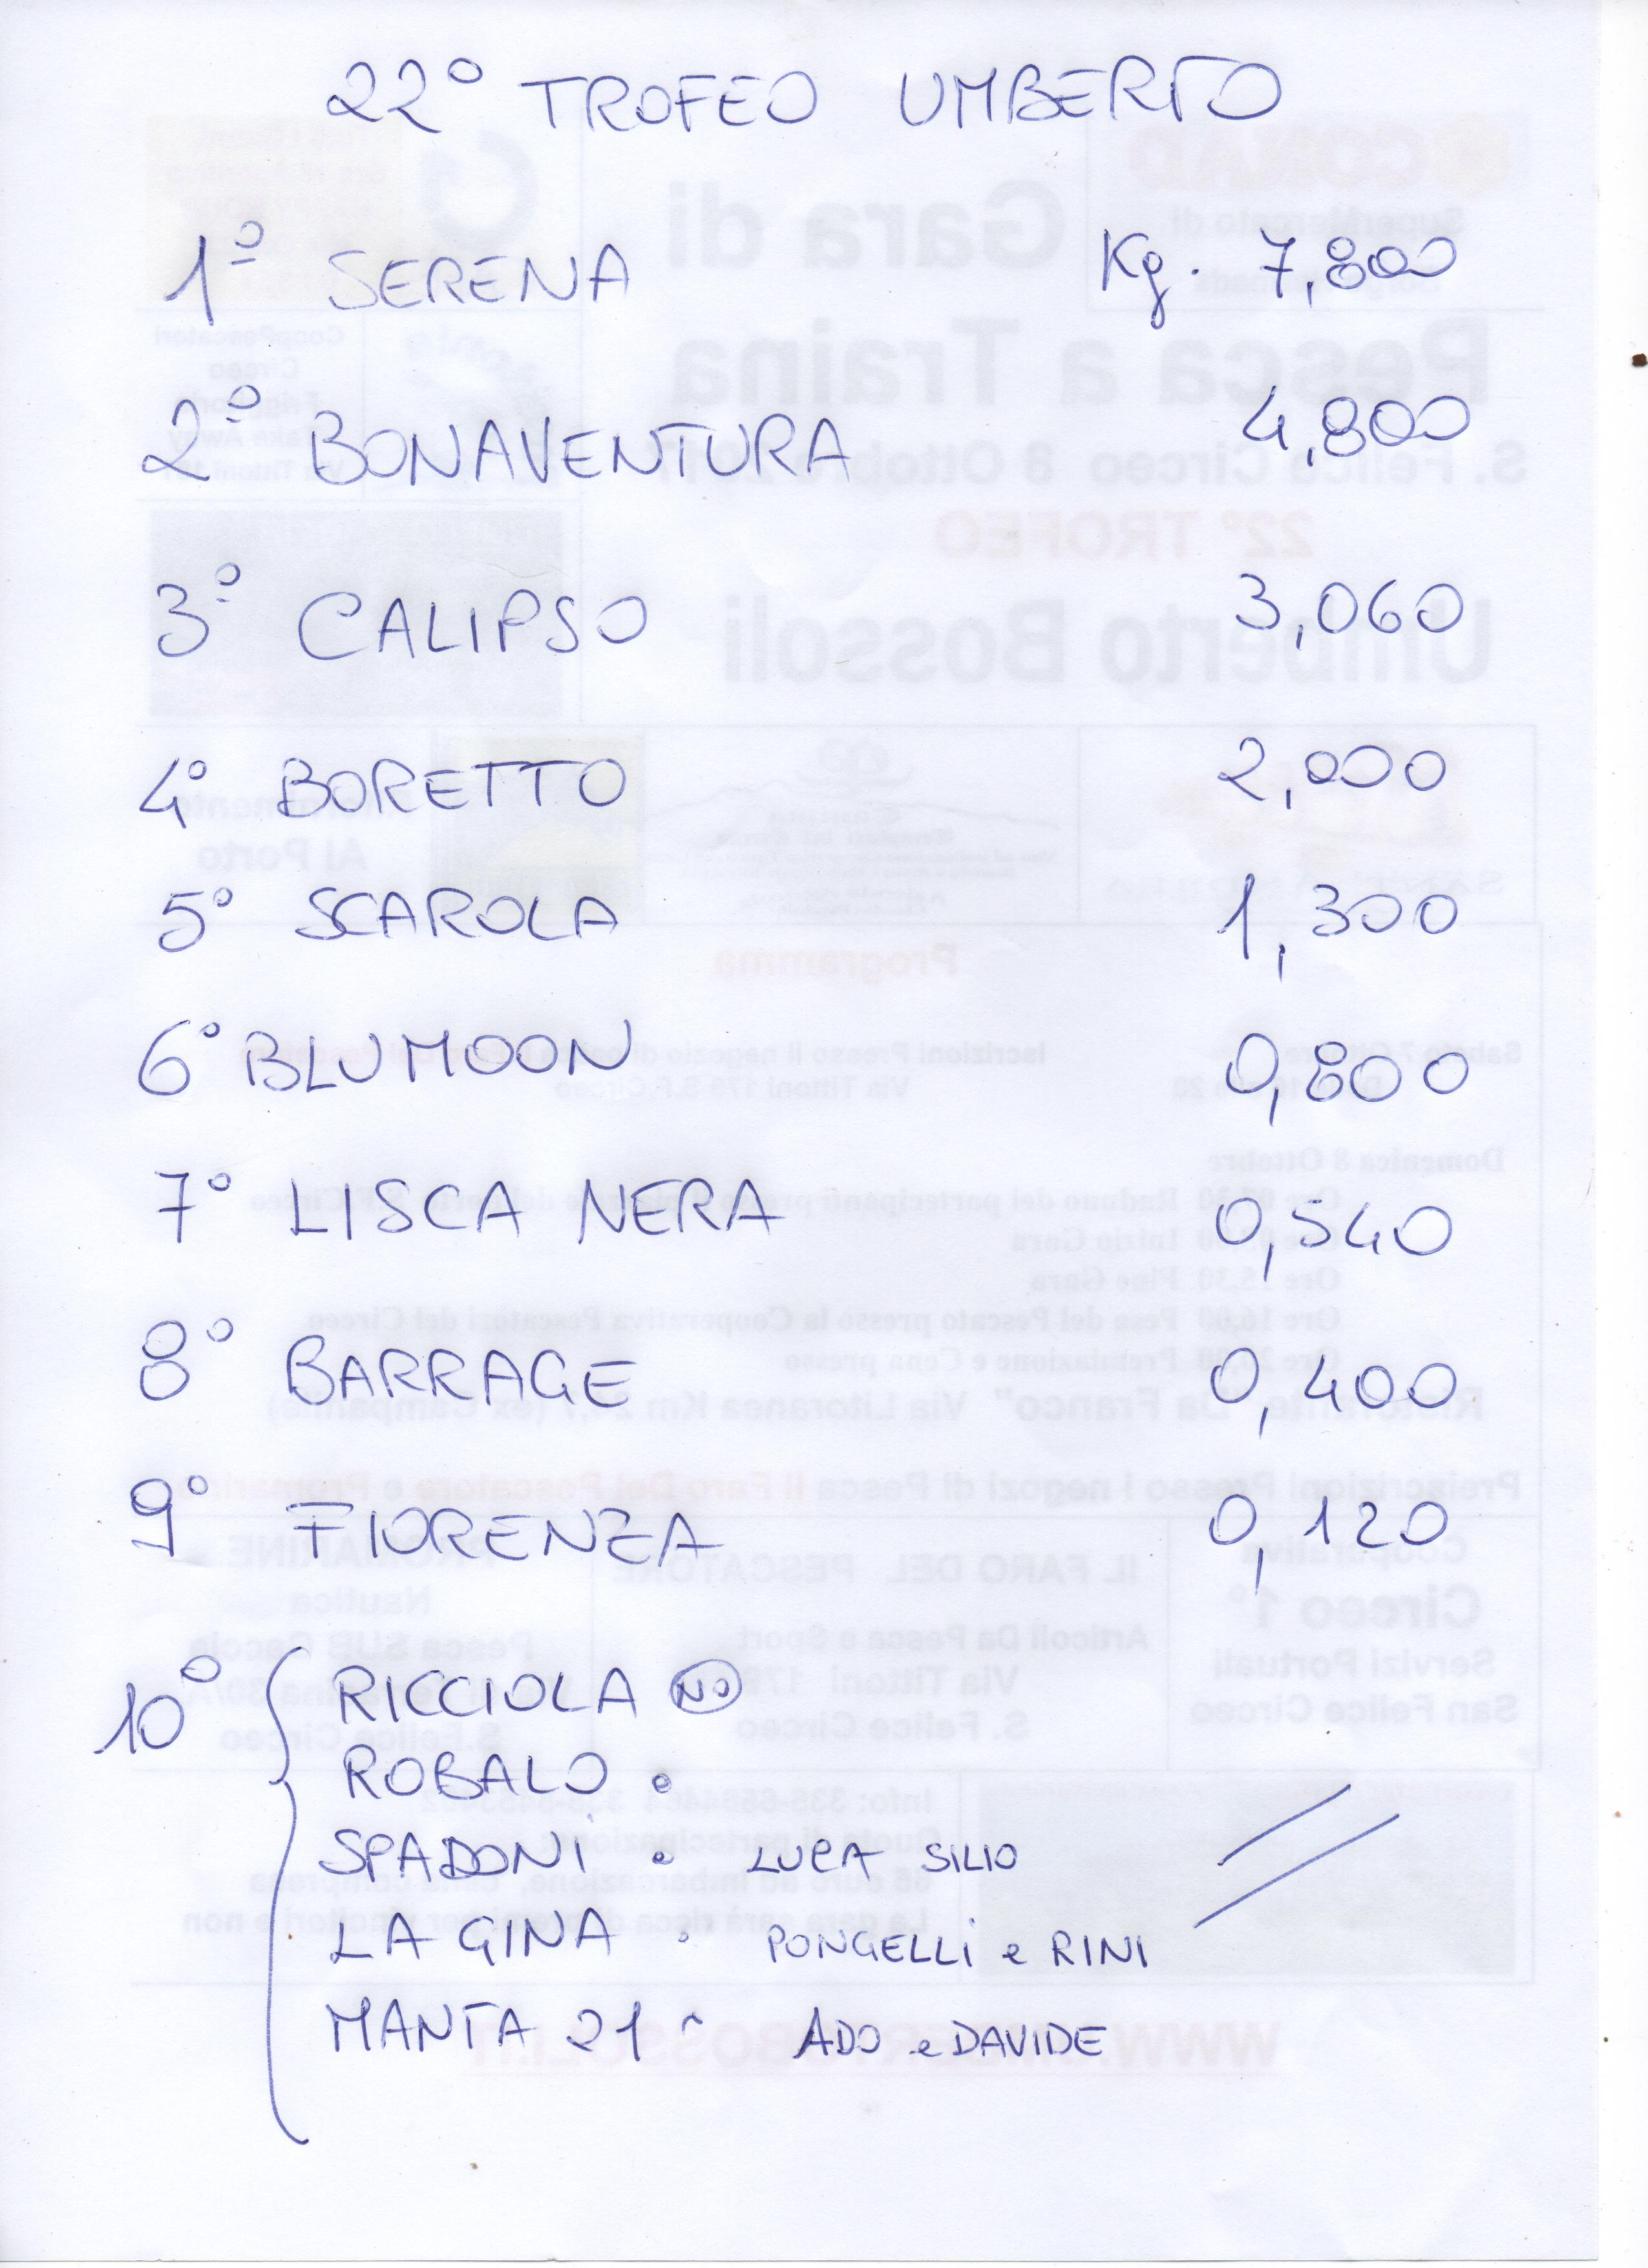 22° TROFEO UMBERTO
1° SERENA Kg. 7,800
2° BONAVENTURA 4,800
3° CALIPSO 3,060
4° BORETTO 2,000
5° SCAROLA 1,300
6° BLUMOON 0,800
7° LISCA NERA 0,540
8° BARRAGE 0,400
9° FIORENZA 0,120
10° RICCIOLA NO
ROBALO
SPADONI LUCA SILIO
LA GINA PONGELLI e RINI
MANTA 21 ADO e DAVIDE